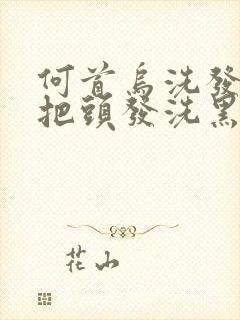 何首烏洗發
把頭發洗黑
花山